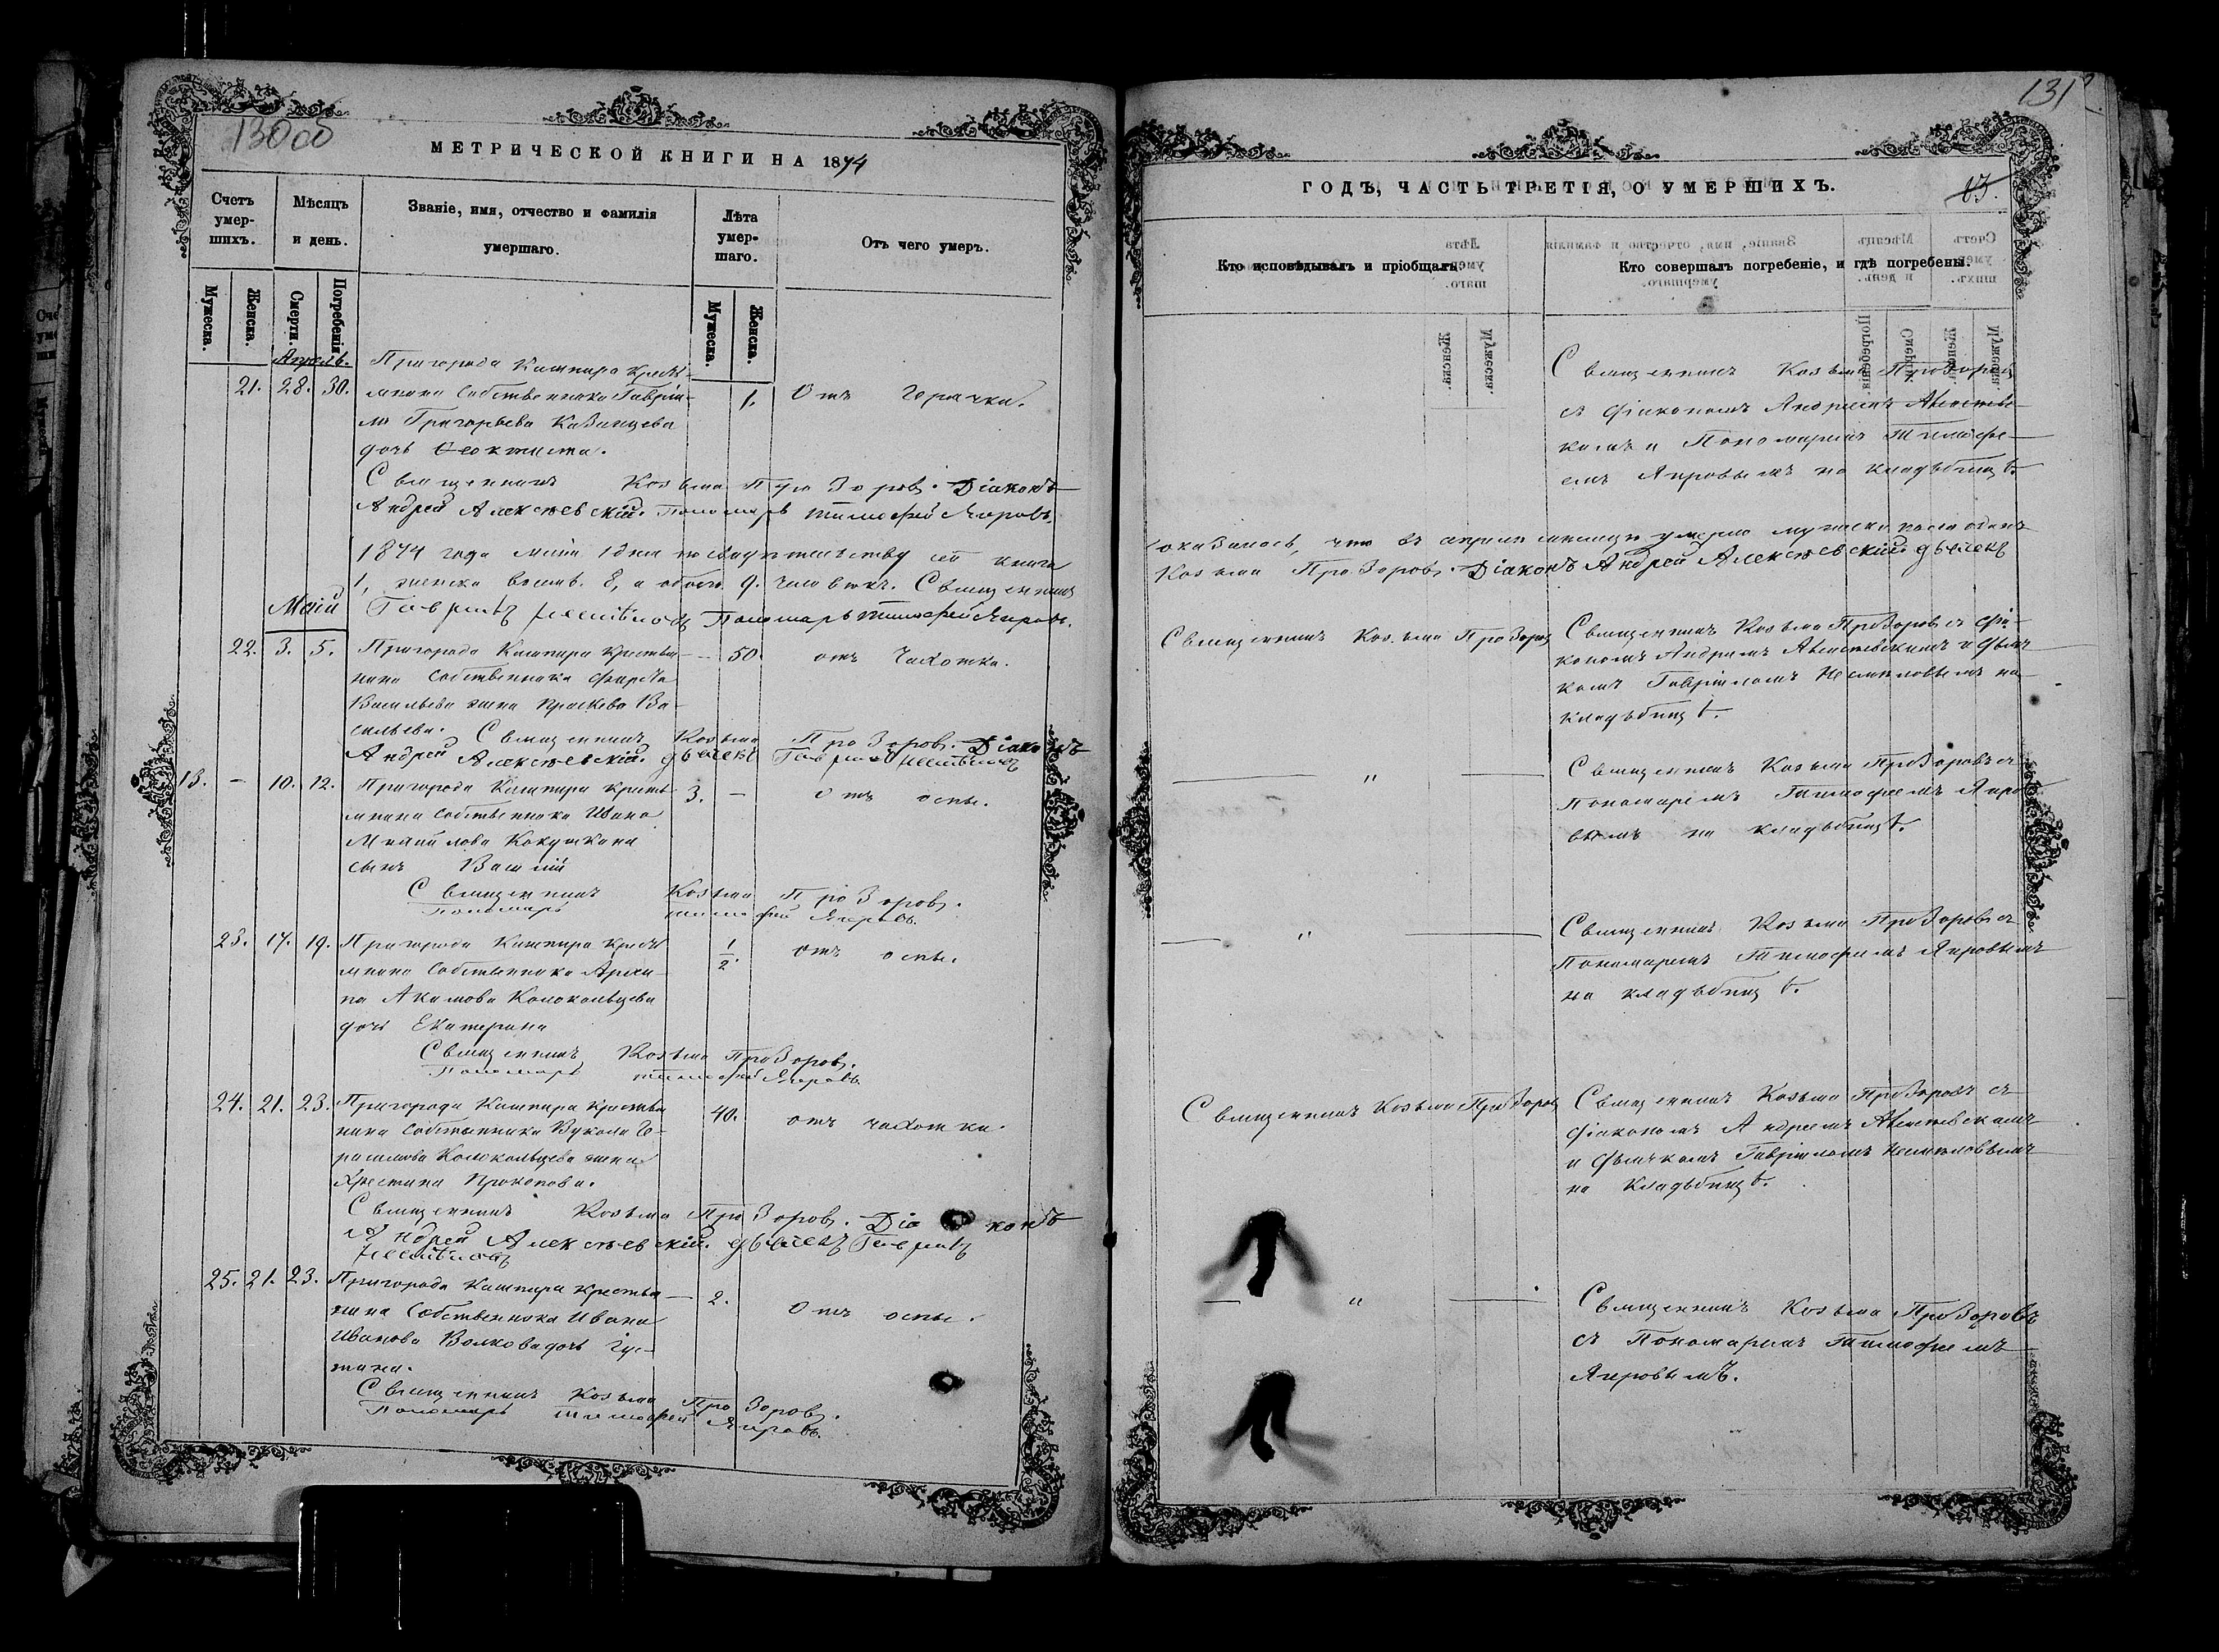 130об
МЕТРИЧЕСКОЙ КНИГИ НА 1874
Счетъ умер-
шихъ.
Мѣсяцъ
и день.
Званіе, имя, отчество и фамилія
умершаго.
Лѣта
умер-
шаго.
Отъ чего умеръ.
Мужеска.
Женска.
Смерти.
Погребенія
Мужеска.
Женска.
Апрель.
21. 28. 30. Пригорода Кашпира кресть-
янина собственника Гаврiи-
ла Григорьева Казанцева
дочь Феоктиста.
1. Отъ горячки.
Священникъ Козьма Прозоровъ. Діаконъ
Андрей Алексѣевскій. Пономарь Тимофей Яировъ.
1874 года маія 1 дня по свидѣтельству сей книги
1, женска восмь. 8, а обоего 9. человѣкъ. Священникъ
Маій
Гавриилъ Пономарь Тимофей Яировъ.
22. 3. 5. Пригорода Кашпира крестья-
нина собственника
Васильева жена Праскева Ва-
сильева.
— 50. отъ чахотки.
Священникъ Козьма Прозоровъ. Діаконъ
Андрей Алексѣевскій. дьячекъ Гавриилъ
13. — 10. 12. Пригорода Кашпира кресть-
янина собственника Ивана
Михайлова Кокушкина
сынъ Василій
3. — отъ оспы.
Священникъ Козьма Прозоровъ.
Пономарь Тимофей Яировъ.
23. 17. 19. Пригорода Кашпира кресть-
янина собственника Архи-
па Акимова Колокольцева
дочь Екатерина
1/2. отъ оспы.
Священникъ Козьма Прозоровъ.
Пономарь Тимофей Яировъ
24. 21. 23. Пригорода Кашпира крестья-
нина собственника Вукола Ге-
расимова Колокольцева жена
Христина Прокопова.
40. отъ чахотки.
Священникъ Козьма Прозоровъ. Діаконъ
Андрей Алексѣевскій. дьячекъ Гавриилъ
25. 21. 23. Пригорода Кашпира крестья-
нина собственника Ивана
Иванова Волкова дочь Іус-
тина.
— 2. Отъ оспы.
Священникъ Козьма Прозоровъ.
Пономарь Тимофей Яировъ.
131
ГОДЪ, ЧАСТЬ ТРЕТІЯ, О УМЕРШИХЪ.
13.
Кто исповѣдывалъ и пріобщалъ.
Кто совершалъ погребеніе, и гдѣ погребены.
Священникъ Козьма Прозоровъ
съ діакономъ Андреемъ Алексѣев-
скимъ и Пономаремъ Тимофе-
емъ Яировымъ на кладьбищѣ.
оказалось, что въ апрелѣ месяцѣ умерло мужеска пола одинъ
Козьма Прозоровъ. Діаконъ Андрей Алексѣевскій. дьячекъ
Священникъ Козьма Прозоровъ
Священникъ Козьма Прозоровъ съ діа-
кономъ Андреемъ Алексѣевскимъ и дьяч-
комъ Гавріиломъ Несмѣловымъ на
кладьбищѣ.
— " —
Священникъ Козьма Прозоровъ съ
Пономаремъ Тимофеемъ Яиро-
вымъ на кладьбищѣ.
— " —
Священникъ Козьма Прозоровъ съ
Пономаремъ Тимофеемъ Яировымъ
на кладьбищѣ.
Священникъ Козьма Прозоровъ
Священникъ Козьма Прозоровъ съ
діакономъ Андреемъ Алексѣевскимъ
и дьячкомъ Гавріиломъ Несмѣловымъ
на кладьбищѣ.
— " —
Священникъ Козьма Прозоровъ
съ Пономаремъ Тимофеемъ
Яировымъ.